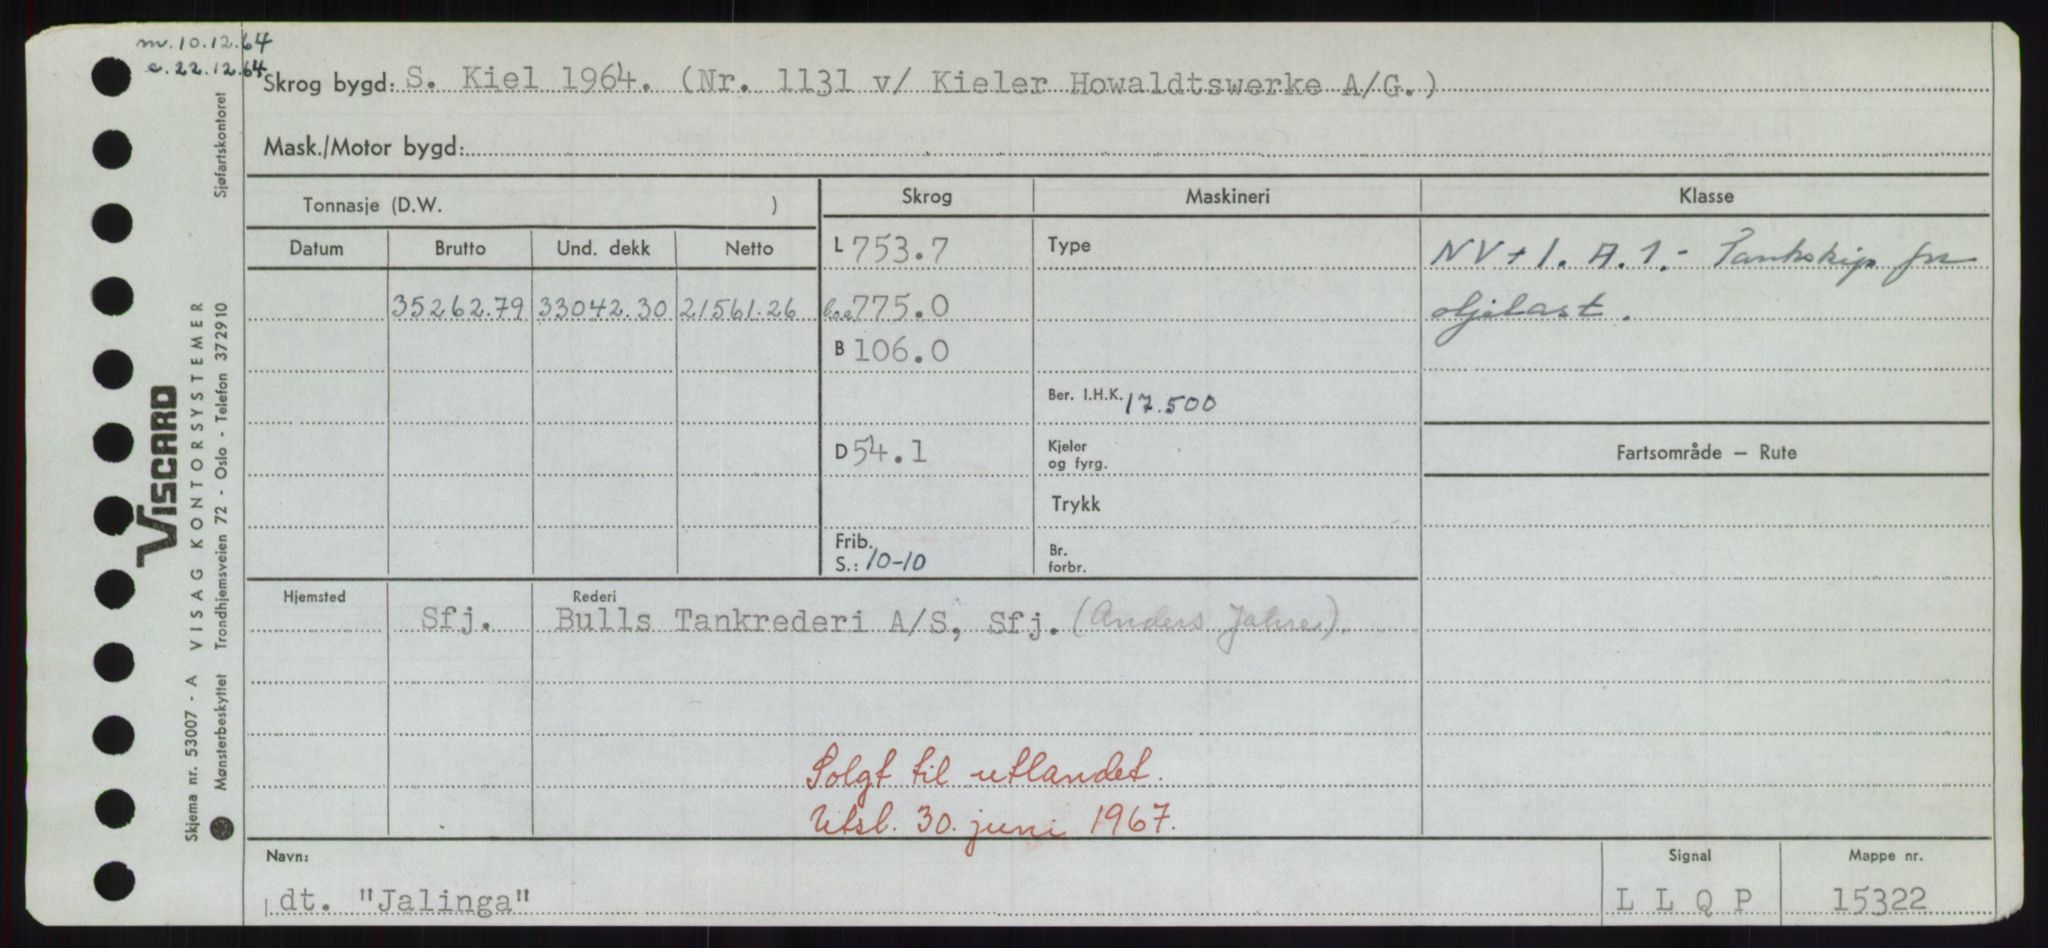 m. 10.12.64
c. 22.12.64
Skrog bygd: S. Kiel 1964. (Nr. 1131 v/ Kieler Howaldtswerke A/G.)
Mask./Motor bygd:
Tonnasje (D.W. )
Skrog Maskineri Klasse
Datum Brutto Und. dekk Netto
L 753.7 Type NV + 1. A. 1. - Tankskip for
35262.79 33042.30 21561.26 loa 775.0 oljelast.
B 106.0
Ber. I.H.K. 17.500
D 54.1 Kjeler og fyrg. Fartsområde — Rute
Trykk
Frib. S.: 10-10 Br. forbr.
Hjemsted Rederi
Sfj. Bulls Tankrederi A/S, Sfj. (Anders Jahre).
Solgt til utlandet.
Utsl. 30. juni 1967.
Navn: Signal Mappe nr.
dt. "Jalinga" L L Q P 15322
VISCARD
Skjema nr. 53007 - A VISAG KONTORSYSTEMER
Mønsterbeskyttet Trondhjemsveien 72 - Oslo - Telefon 372910 Sjøfartskontoret